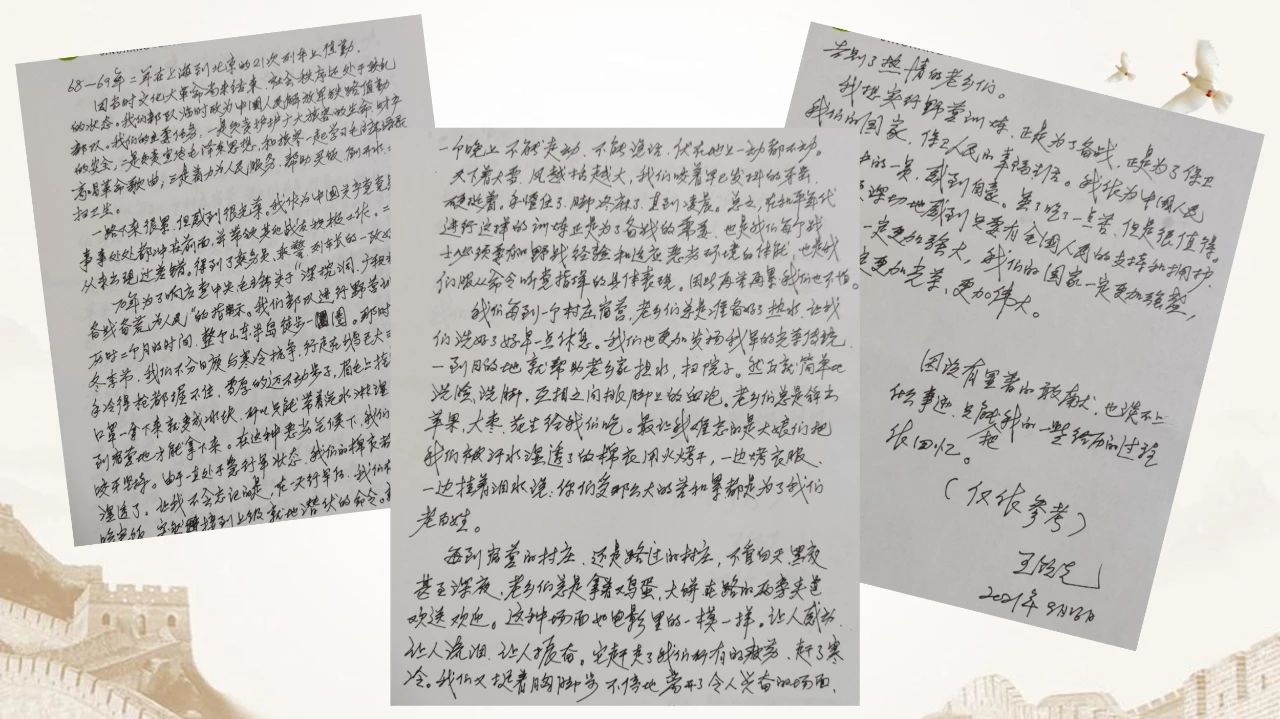 68—69年二年在上海到北京的21次列车上值勤.
因当时文化大革命尚未结束,社会秩序还处于
的状态。我们部队临时改为中国人民解放军铁路值勤
部队。我们的主要任务,一是负责维护广大旅客的生命、财产
的安全,二是负责宣传毛泽东思想,和旅客一起学习毛主席语录
高唱革命歌曲,三是着力为人民服务,帮助买饭,倒开水
扫卫生。
一路下来很累,但感到很光荣。我作为中国共产党党员
事事处处都冲在前面,并带领其他战友积极工作。二
从未出现过差错。得到了乘务员、乘警、列车长的一致
70年为了响应党中央毛主席关于“深挖洞、广积
备战备荒为人民”的指示。我们部队进行野营
历时二个月的时间,整个山东半岛徒步一圈。那时
冬季节,我们不分日夜与寒冷抗争,行走在鹅毛大
手冷得枪都握不住,雪厚的迈不动步子,眉毛上挂
口罩一拿下来就变成冰块,所以只能带着
到宿营地才能拿下来。在这种恶劣气候下,我们
咬牙坚持。由于一直处于急行军状态,我们的棉衣
湿透了。让我不会忘记的是,在一次行军后,我们
突然接到上级就地潜伏的命令。
一个晚上不能走动、不能说话,伏在地上一动都不动。
天下着大雪,风越括越大,我们咬着早已发抖的牙齿,
硬挺着,手僵住了,脚冻麻了,甚到凌晨。总之,在和平年代
进行这样的训练正是为了备战的需要,也是我们每个战
士必须要有的野战经验和适应恶劣环境的体能,也是我
们服从命令听党指挥的具体表现。因此再苦再累我们也不怕。
我们每到一个村庄宿营,老乡们总是准备好了热水,让我
们洗好了好早一点休息。我们也更加发扬我军的光荣传统,
一到目的地就帮助老乡家担水,扫院子。然后就简单地
洗脸、洗脚,互相之间挑脚上的血泡。老乡们总是锊出
苹果、大枣、花生给我们吃。最让我难忘的是大娘们把
我们被汗水湿透了的棉衣用火烤干,一边烤衣服,
一边挂着泪水说:你们受那么大的苦和累都是为了我们
老百姓。
每到宿营的村庄,还是路过的村庄,不管白天、黑夜
甚至深夜,老乡们总是拿着鸡蛋,大饼在路的两旁夹道
欢送欢迎。这种场面和电影里的一模一样。让人感动,
让人流泪,让人振奋。它赶走了我们所有的疲劳、赶了寒
冷。我们又挺着胸脚步不停地离开了令人兴奋的场面,
告别了热情的老乡们。
我想实行野营训练,正是为了备战,正是为了保卫
我们的国家,保卫人民的幸福生活。我作为中国人民
中的一员,感到自豪。虽了吃了一点苦,但是很值得。
深切地感到只要有全国人民的支持和拥护,
一定更加强大,我们的国家一定更加强盛,
更加光荣、更加伟大。
因没有显著的贡献,也谈不上
什么事迹,只能把我的一些经历的过程
做回忆。
(仅供参考)
2021年9月